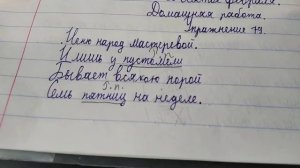 февраля.
Домашняя работа.
Упражнение 79.
Ценю народ мастеровой.
И лишь у пустомели
Бывает всякою порой
Р.п.
Семь пятниц на неделе.